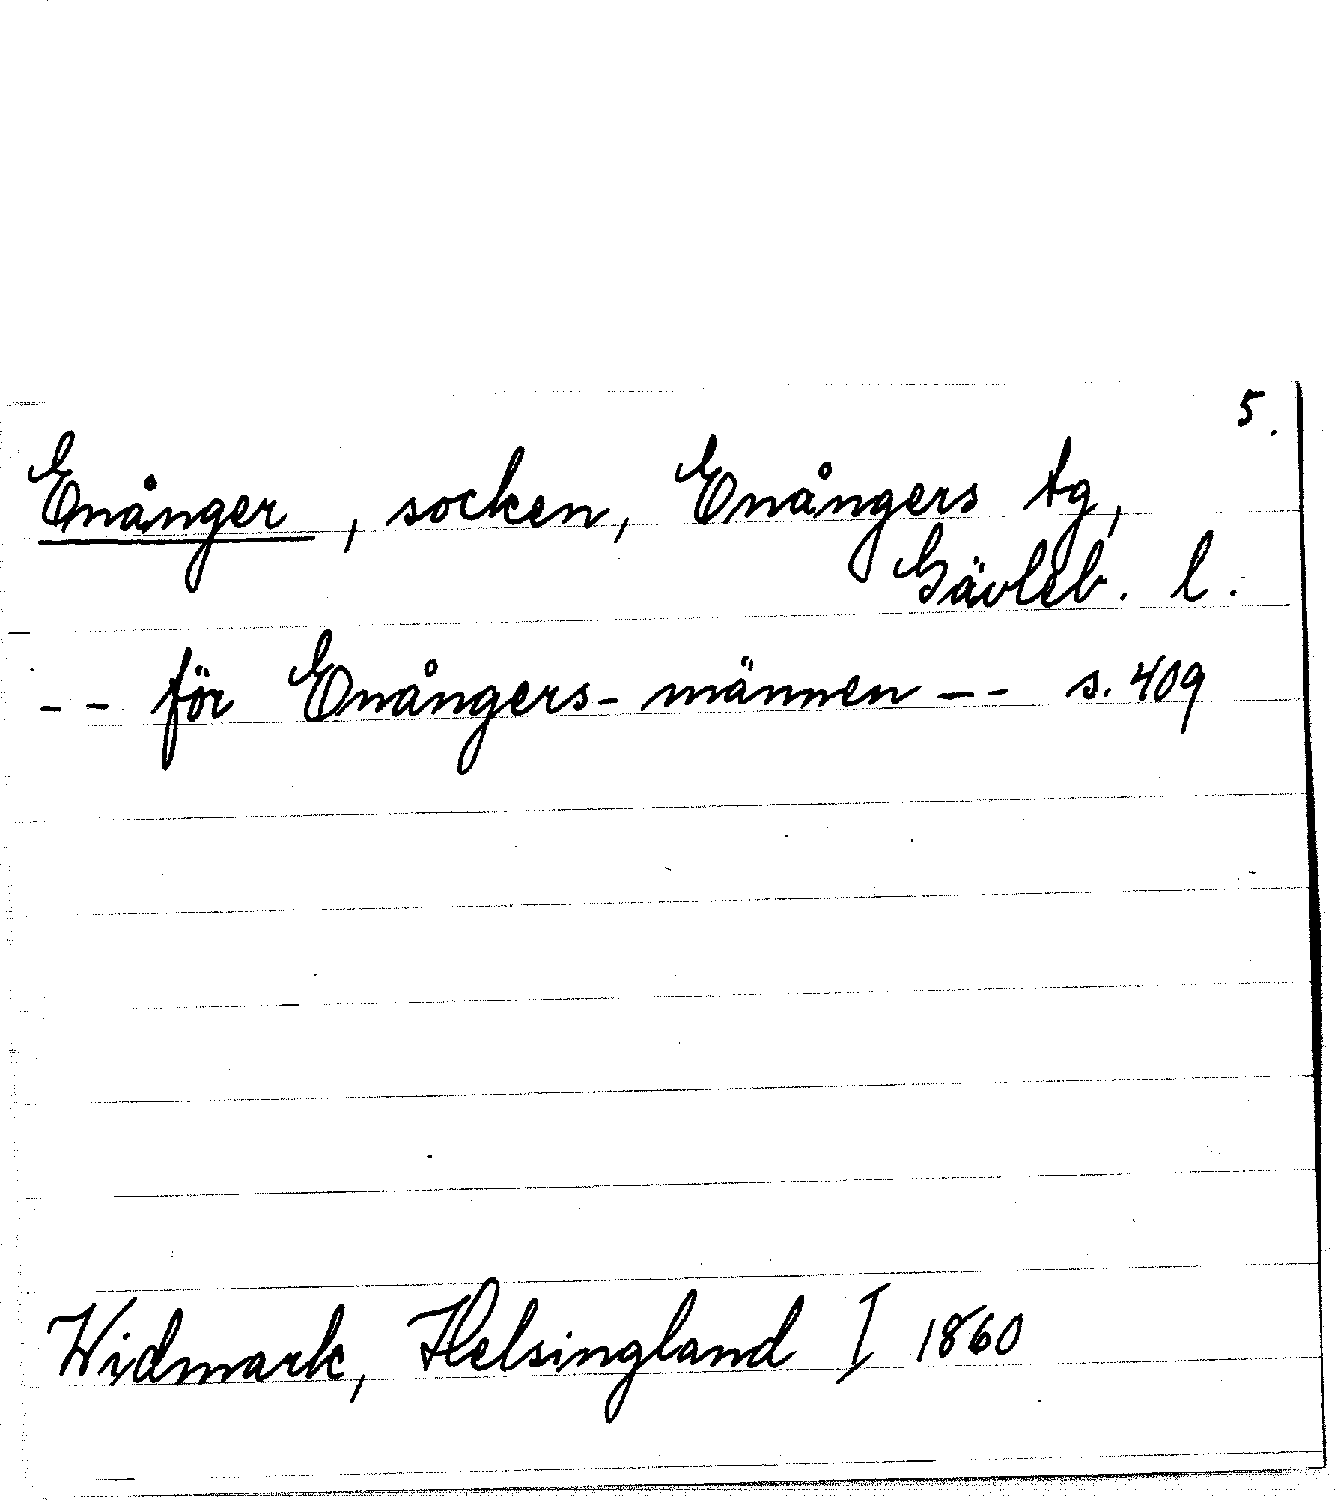 5.
Enånger, socken, Enångers tg,
Gävleb. l.
-- för Enångers-männen -- s. 409
Widmark, Helsingland I 1860